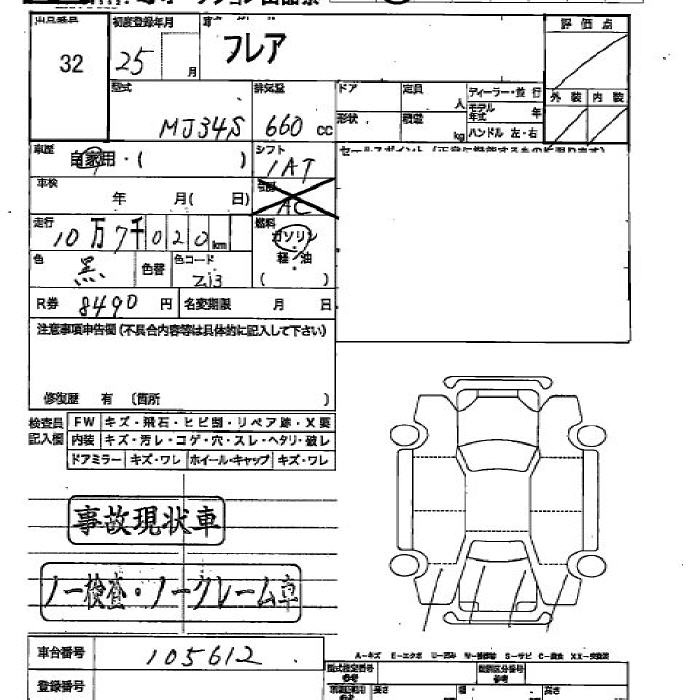 初度登録年月
32
25 月
フレア
評価点
型式
MJ34S
排気量
660 cc
ドア
定員
人
ディーラー・並行
モデル年式 年
形状
積載
kg
ハンドル 左・右
外装 内装
車歴
自家用・( )
シフト
IAT
車検
年 月( 日)
AC
走行
10万7千020km
燃料
ガソリン
軽油
( )
色
黒
色替
色コード
ZJ3
R券 8490 円
名変期限 月 日
注意事項申告欄(不具合内容等は具体的に記入して下さい)
修復歴 有 〔箇所 〕
検査員記入欄
FW キズ・飛石・ヒビ割・リペア跡・X要
内装 キズ・汚レ・コゲ・穴・スレ・ヘタリ・破レ
ドアミラー キズ・ワレ ホイール・キャップ キズ・ワレ
事故現状車
ノー検査・ノークレーム車
車台番号
105612
登録番号
型式指定番号
類別区分番号
長さ
幅
高さ